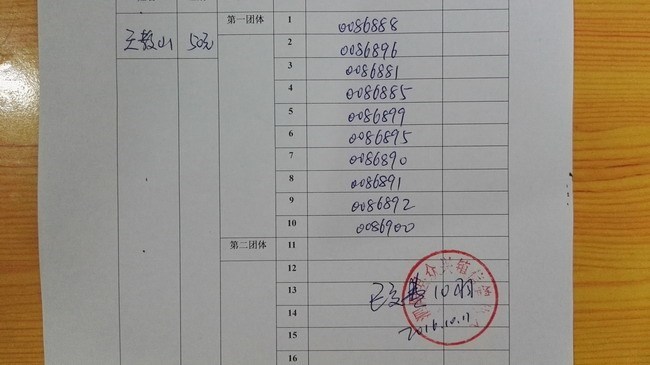 第一团体 1 0086888
50元
2 0086896
3 0086881
4 0086885
5 0086899
6 0086895
7 0086890
8 0086891
9 0086892
10 0086900
第二团体 11
12
13
14
2016.10.11
15
16